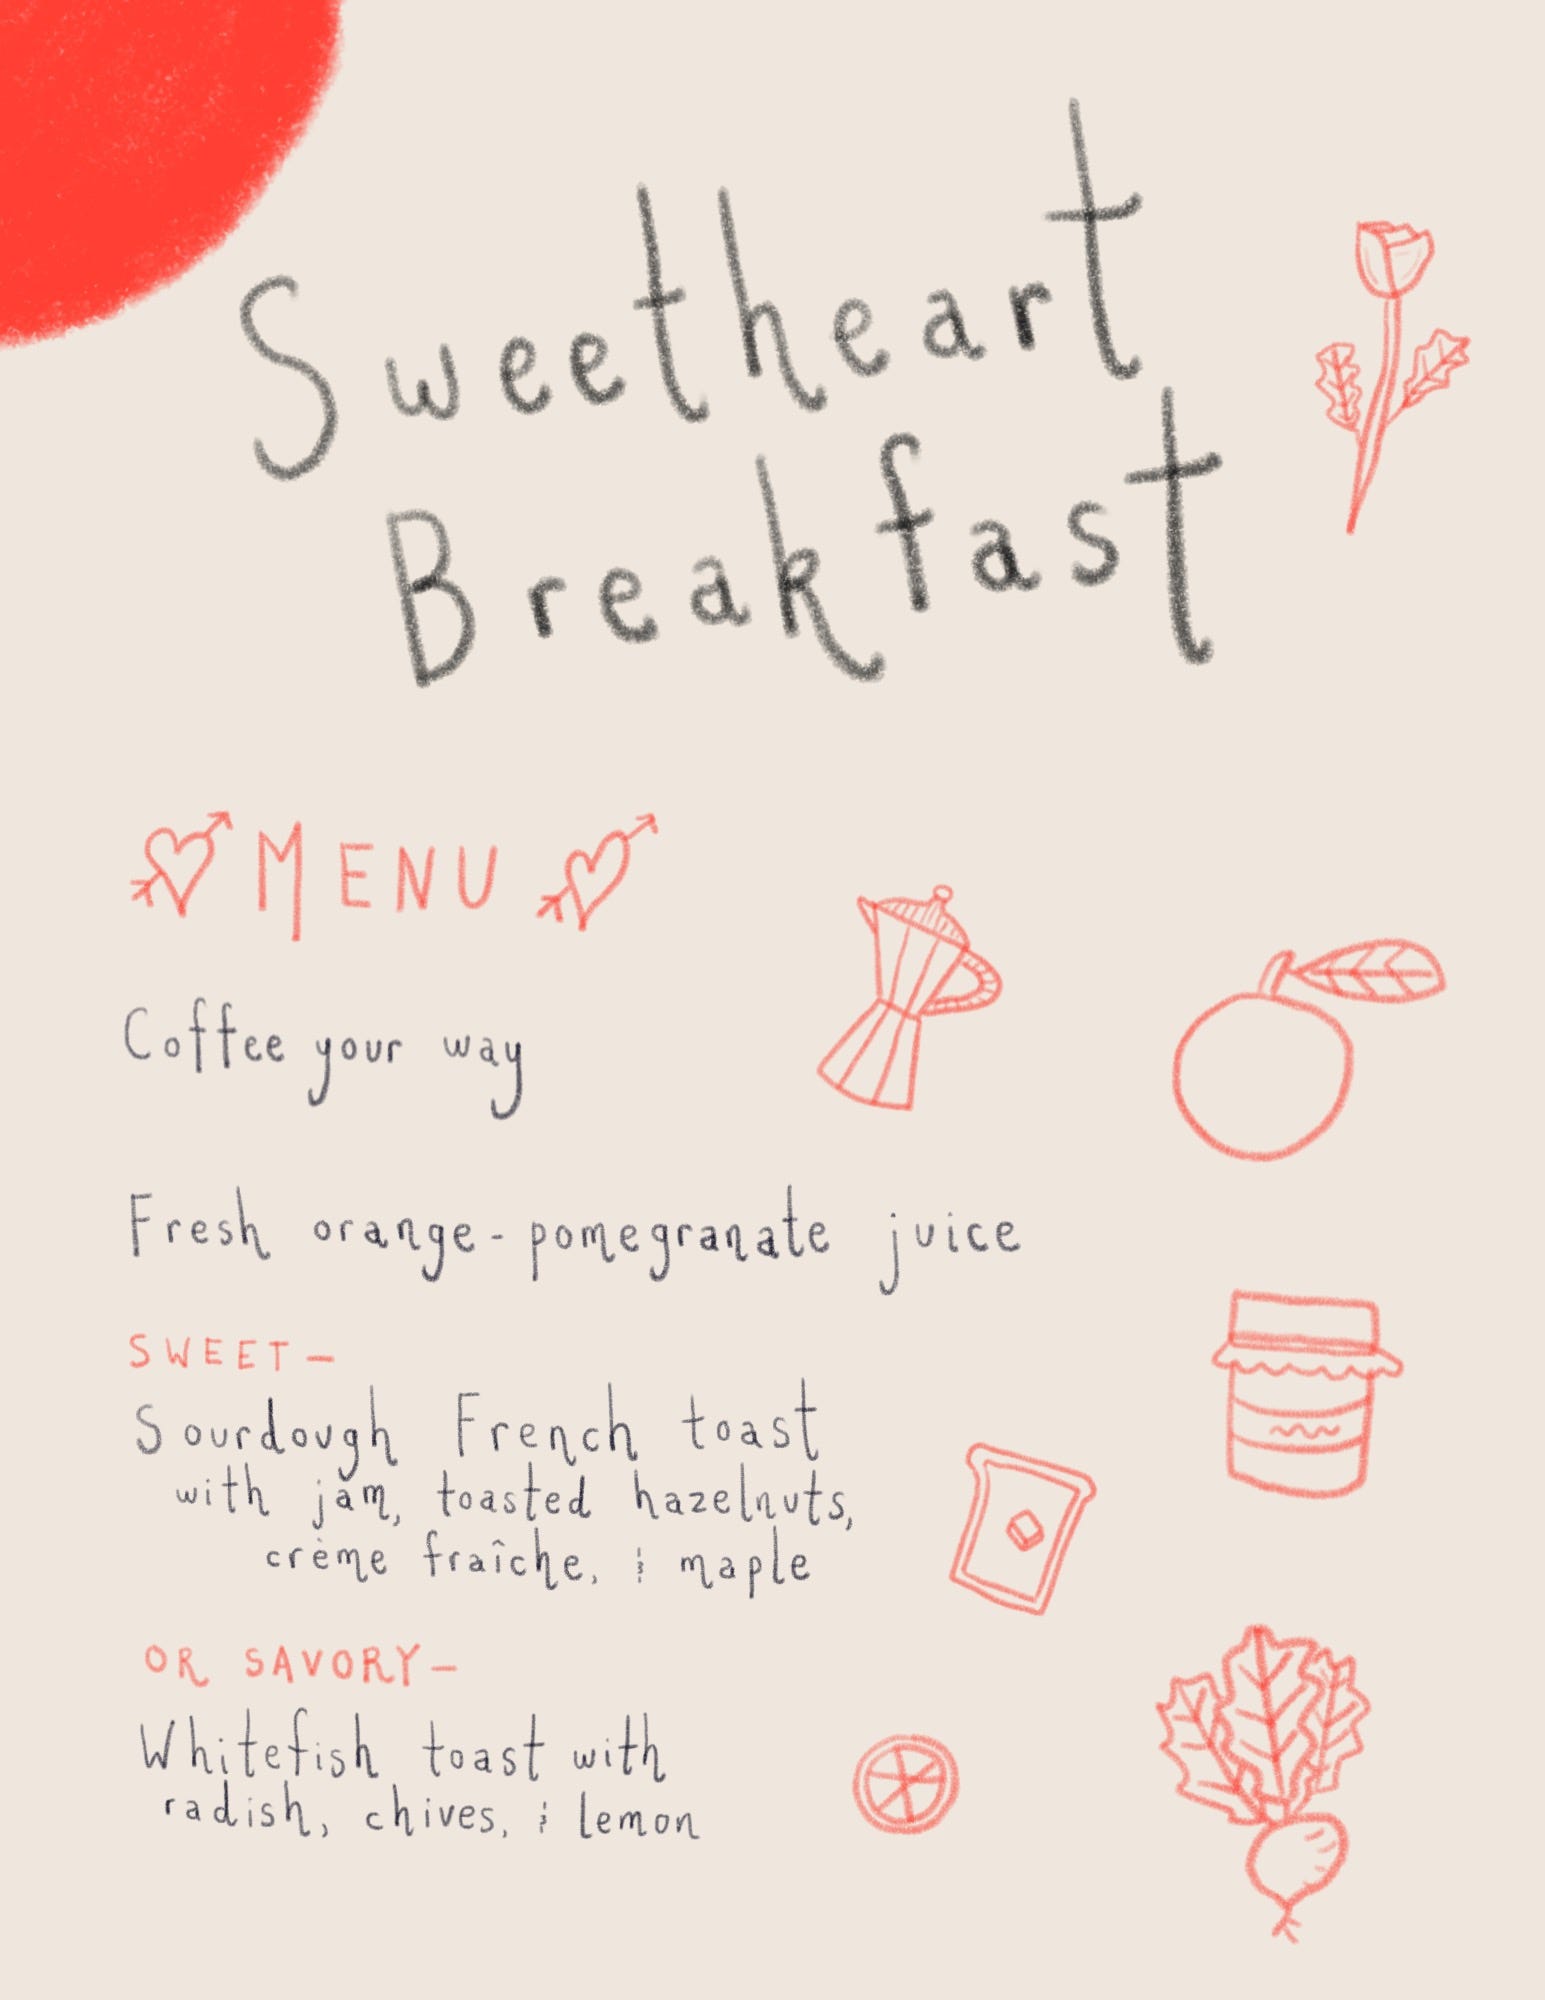 Sweetheart
Breakfast
MENU
Coffee your way
Fresh orange-pomegranate juice
SWEET—
Sourdough French toast
with jam, toasted hazelnuts,
crème fraîche, & maple
OR SAVORY—
Whitefish toast with
radish, chives, & lemon